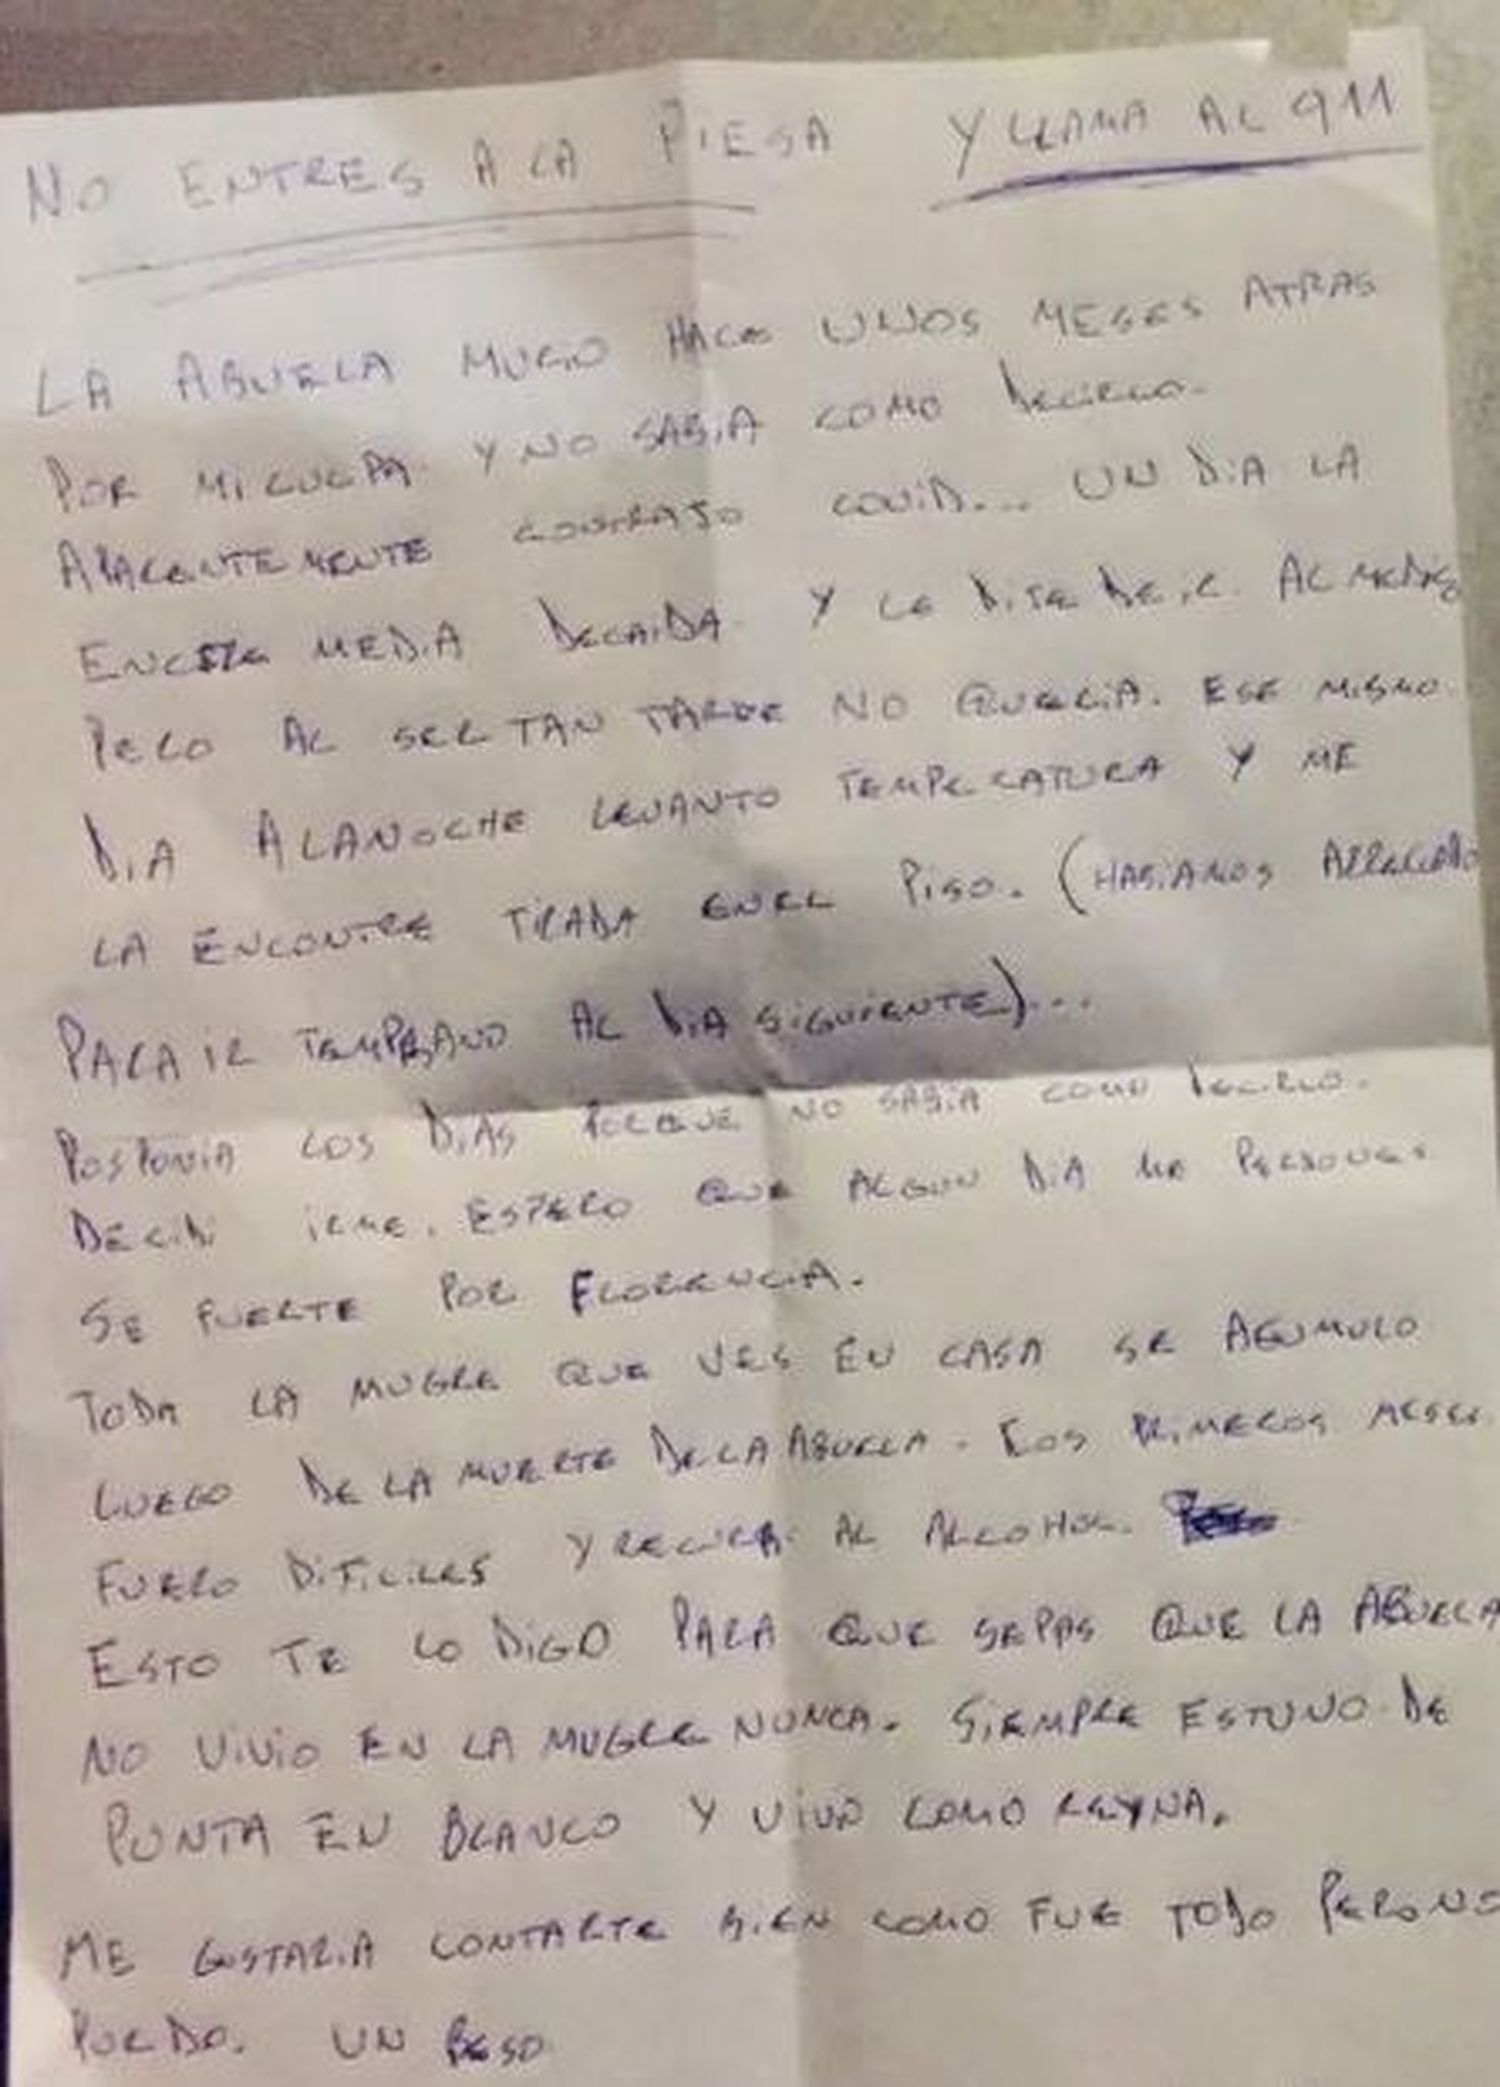 NO ENTRES A LA PIESA Y LLAMA AL 911
LA ABUELA MURIO HACE UNOS MESES ATRAS
POR MI CULPA Y NO SABIA COMO DECIRLO.
APARENTEMENTE CONTRAJO COVID... UN DIA LA
MEDIA DECAIDA Y LE DIJE DE IR AL MEDICO
PERO AL SER TAN TARDE NO QUERIA. ESE MISMO
DIA A LA NOCHE LEVANTO TEMPERATURA Y ME
LA ENCONTRE TIRADA EN EL PISO. (HABIAMOS ARREGLADO
PARA IR TEMPRANO AL DIA SIGUIENTE)...
POSPONIA LOS DIAS PORQUE NO SABIA COMO DECIRLO.
DECIDI IRME. ESPERO QUE ALGUN DIA ME PERDONES
SE FUERTE POR FLORENCIA.
TODA LA MUGRE QUE VES EN CASA SE ACUMULO
LUEGO DE LA MUERTE DE LA ABUELA. LOS PRIMEROS MESES
FUERO DIFICILES Y RECURRI AL ALCOHOL.
ESTO TE LO DIGO PARA QUE SEPAS QUE LA ABUELA
NO VIVIO EN LA MUGRE NUNCA. SIEMPRE ESTUVO DE
PUNTA EN BLANCO Y VIVIO COMO REYNA.
ME GUSTARIA CONTARTE BIEN COMO FUE TODO PERO NO
PUEDO. UN BESO